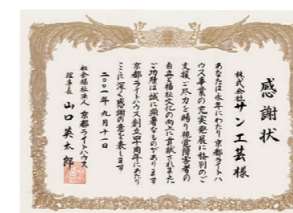 感謝状
株式会社サン工芸様
あなたは永年にわたり京都ライトハ
ウス事業の充実発展に格別のご
支援ご尽力を賜り視覚障害者の
自立と福祉文化の向上に貢献されました
ご功績は誠に顕著なものがあります
京都ライトハウス創立四十周年にあたり
ここに深く感謝の意を表します
二〇〇一年九月十一日
社会福祉法人 京都ライトハウス
理事長 山口英太郎